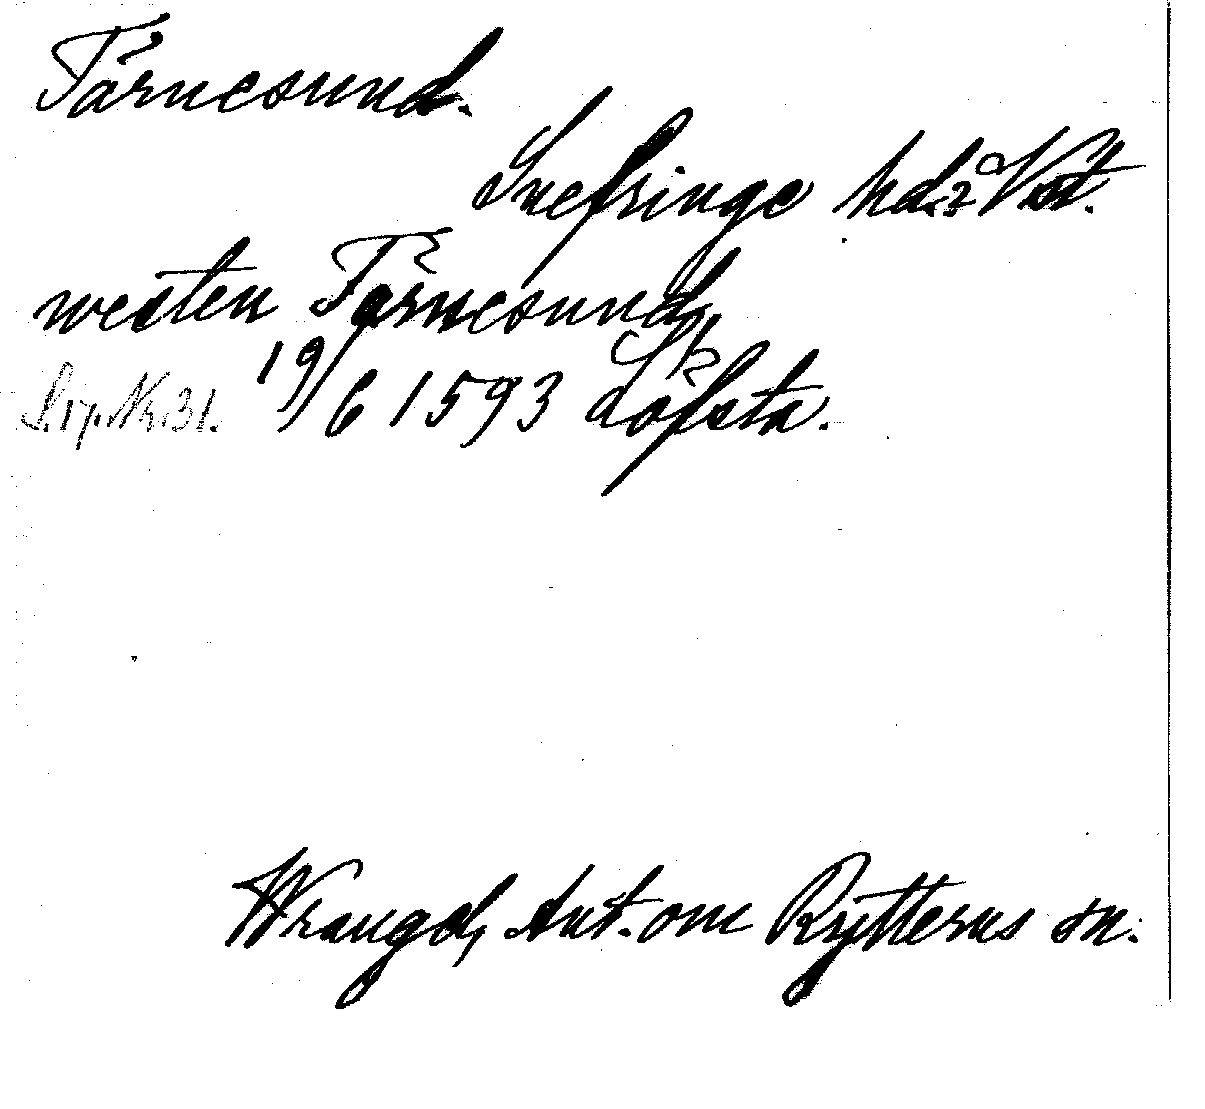 Tärnesund.
Snefringe hd.? Vstm.
westen Tärnesund,
S. 17. Nr. 31. 19/6 1593 Löfsta.
Wrangel, Ant. om Rytterns sn.